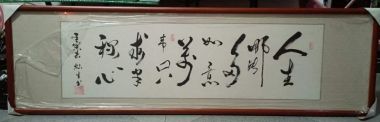 人生
哪能
多
如意
萬
事只
求半
称心